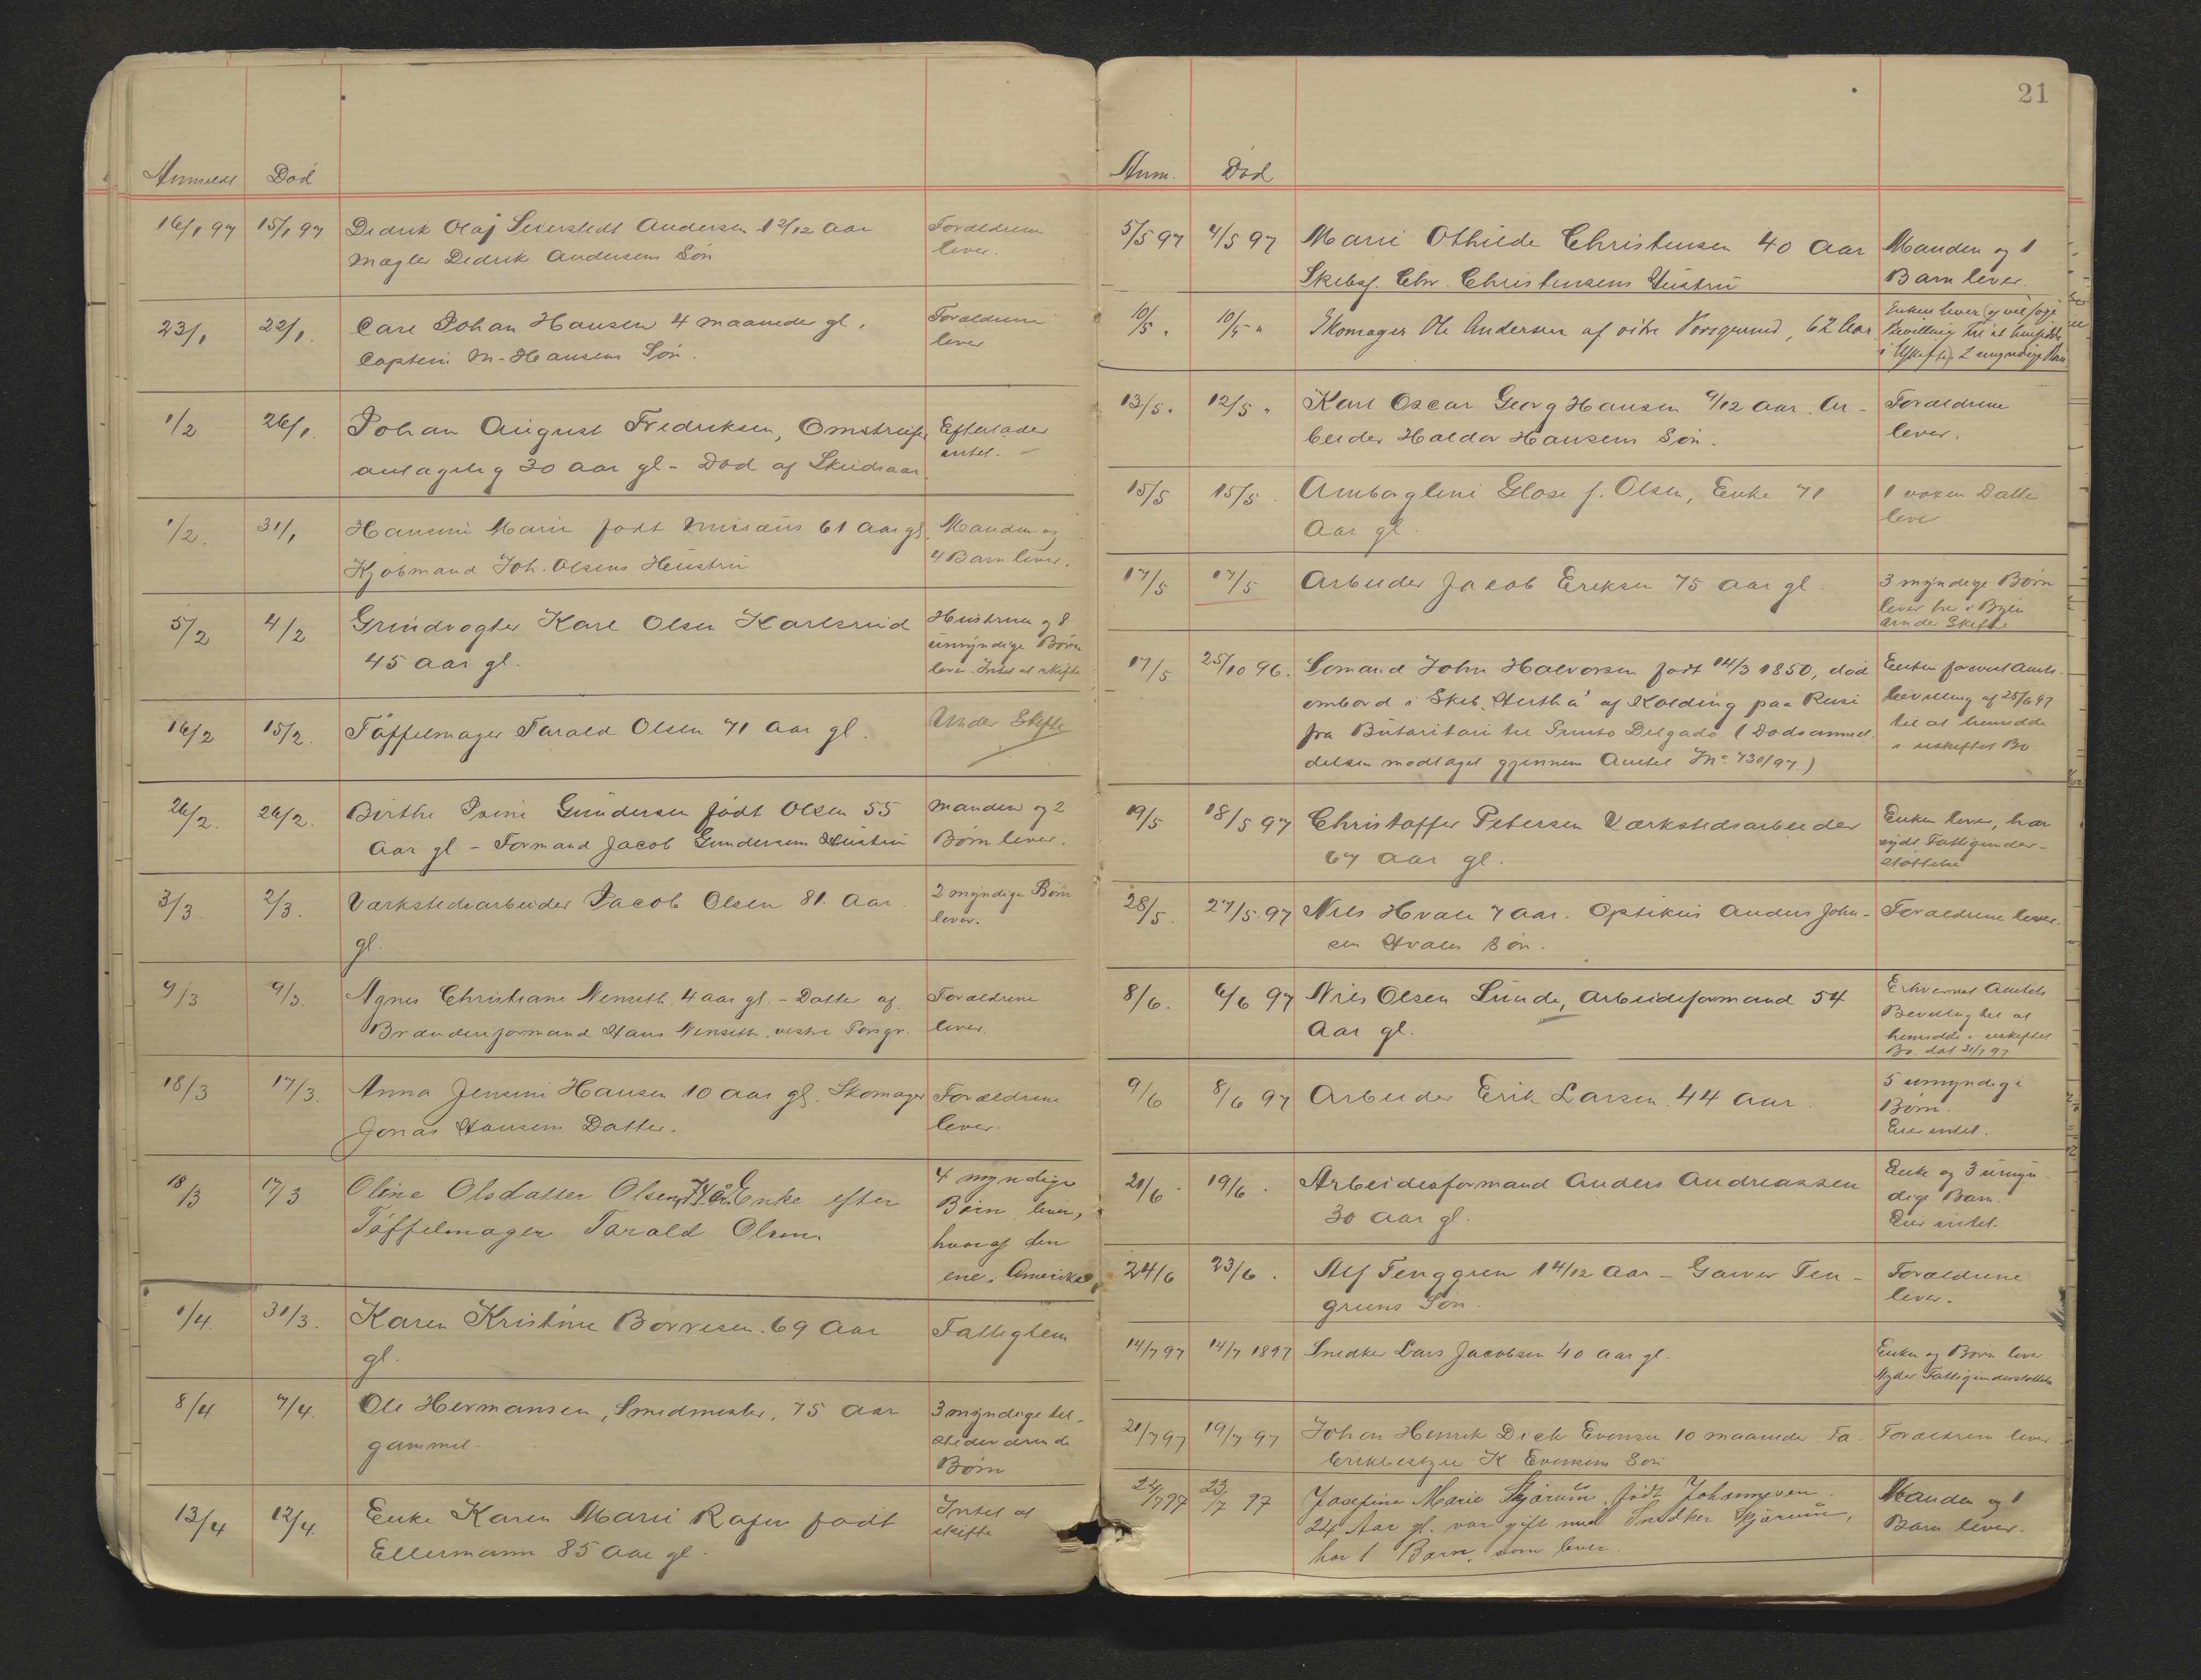 Anmeldt Død
16/1 97 15/1 97 Dedrik Olaf Seierstedt Andersen 1 2/12 Aar Forældrene
Mægler Dedrik Andersens Søn lever.
23/1 22/1. Carl Johan Hansen 4 maaneder gl. Forældrene
Captein M. Hansens Søn. lever
1/2 26/1. Johan August Fredriksen, Omstreifer Efterlader
antagelig 30 Aar gl - Død af Skudsaar intet.
1/2. 31/1 Hansine Marie født 61 Aar gl. Manden og
Kjøbmand Joh. Olsens Hustru 4 Barn lever.
5/2 4/2 Grindvogter Karl Olsen Karlsrud Hustruen og 8
45 Aar gl. umyndige Børn
lever. Intet at skifte
16/2 15/2. Tøffelmager Tarald Olsen 71 Aar gl. Under Skifte
26/2. 26/2. Birthe Gundersen født Olsen 55 Manden og 2
Aar gl - Formand Jacob Gundersens Hustru Børn lever.
3/3. 2/3. Værkstedsarbeider Jacob Olsen 81 Aar 2 myndige Børn
gl. lever.
9/3 9/3. Agnes Christiane Wenseth 4 aar gl. - Datter af Forældrene
Hans Wenseth. vestre Porsgr. lever.
18/3 17/3. Anna Jensine Hansen 10 Aar gl. Skomager Forældrene
Jonas Hansens Datter. lever.
18/3 17/3 Oline Olsdatter Olsen, 74 Aar Enke efter 4 myndige
Tøffelmager Tarald Olsen. Børn lever,
hvoraf den
ene i Amerika
1/4. 31/3. Karen Kristine Borresen. 69 Aar Fattiglem
gl.
8/4 7/4. Ole Hermansen, Smedmester, 75 Aar 3 myndige til-
gammel. stedeværende
Børn
13/4 12/4. Enke Karen Marie Rafen født Intet at
Ellermann 85 Aar gl. skifte
21
Anm. Død
5/5 97 4/5 97 Marie Othilde Christensen 40 Aar Manden og 1
Skibsf. Chr. Christensens Hustru Barn lever.
10/5 " 10/5 " Skomager Ole Andersen af vestre Porsgrund, 62 Aar Enken lever (og vil søge
Bevilling til at hensidde
i Uskifte). 2 umyndige Børn
13/5 " 12/5 " Karl Oscar Georg Hansen 9/12 Aar. Ar- Forældrene
beider Haldor Hansens Søn. lever.
15/5 15/5. Glose f. Olsen, Enke 71 1 voxen Datter
Aar gl. lever
17/5 17/5 Arbeider Jacob Eriksen 75 Aar gl. 3 myndige Børn
lever her i Byen
under Skifte
17/5 25/10 96. Sømand John Halvorsen født 14/3 1850, død Enken faaet Amts-
ombord i Skib "Hertha" af Kolding paa Reise bevilling af 25/6 97
fra Butaritari til Punto Delgado. (Dødsanmel- til at hensidde
delsen modtaget gjennem Amtet No. 730/97.) i uskiftet Bo
19/5 18/5 97 Christoffer Petersen Værkstedsarbeider Enken lever, har
67 Aar gl. nydt Fattigunder-
støttelse
28/5. 27/5 97 Nils Hvale 7 Aar. Optikus Anders John- Forældrene lever.
sen Hvales Søn.
8/6. 6/6 97 Nils Olsen Lunde, Arbeidsformand 54 Erhvervet Amtets
Aar gl. Bevilling til at
hensidde i uskiftet
Bo. dat 31/7 97
9/6 8/6 97 Arbeider Erik Larsen 44 Aar. 5 umyndige
Børn.
Eier intet.
21/6. 19/6. Arbeidsformand Anders Andreassen Enke og 3 umyn-
30 Aar gl. dige Barn.
Eier intet.
24/6 23/6. Alf Tenggren 1 4/12 Aar - Garver Ten- Forældrene
grens Søn. lever.
14/7 97 14/7 1897 Snedker Lars Jacobsen 40 Aar gl. Enken og Børn lever
Nyder Fattigunderstøttelse
21/7 97 19/7 97 Johan Henrik Dick Evensen 10 maaneder. Fa- Forældrene lever
brikbestyrer K. Evensens Søn
24/7 97 23/7 97 Josefine Marie Skjørum, født Johannesen Manden og 1
24 Aar gl. var gift med Snedker Skjørum, Barn lever.
har 1 Barn, som lever.